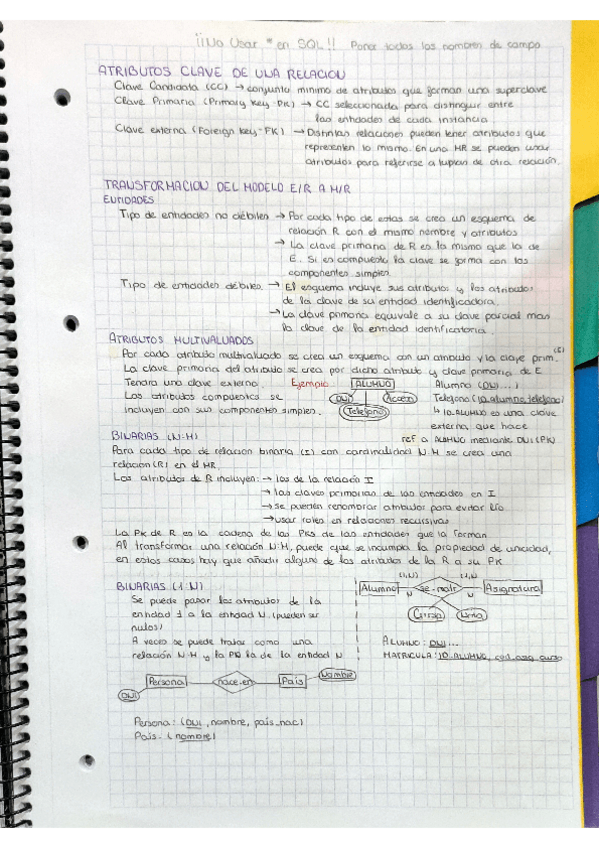 ¡¡No Usar * en SQL!! Poner todos los nombres de campo
ATRIBUTOS CLAVE DE UNA RELACION
Clave Candidata (CC) → conjunto mínimo de atributos que forman una superclave
Clave Primaria (Primary Key-PK) → CC seleccionada para distinguir entre
las entidades de cada instancia.
Clave externa (Foreign Key-FK) → Distintas relaciones pueden tener atributos que
representen lo mismo. En una MR se pueden usar
atributos para referirse a tuplas de otra relación.
TRANSFORMACION DEL MODELO E/R A M/R
ENTIDADES
Tipo de entidades no débiles → Por cada tipo de estas se crea un esquema de
relación R con el mismo nombre y atributos
→ La clave primaria de R es la misma que la de
E. Si es compuesta la clave se forma con los
componentes simples.
Tipo de entidades débiles. → El esquema incluye sus atributos y los atributos
de la clave de su entidad identificadora.
→ La clave primaria equivale a su clave parcial mas
la clave de la entidad identificatoria.
ATRIBUTOS MULTIVALUADOS
Por cada atributo multivaluado se crea un esquema con un atributo y la clave prim. (E)
La clave primaria del atributo se crea por dicho atributo y clave primaria de E
Tendra una clave externa. Ejemplo ALUMNO Alumno (DNI...)
Los atributos compuestos se DNI Telefono (ID.alumno, telefono)
incluyen con sus componentes simples. Telefono ↳ ID.ALUMNO es una clave
externa que hace
BINARIAS (N:M) ref a ALUMNO mediante DNI (PK)
Para cada tipo de relacion binaria (I) con cardinalidad N:M se crea una
relacion (R) en el MR
Los atributos de R incluyen: → los de la relación I
→ las claves primarias de las entidades en I
→ se pueden renombrar atributos para evitar lío
→ usar roles en relaciones recursivas
La PK de R es la cadena de las PKs de las entidades que la forman
Al transformar una relación N:M, puede que se incumpla la propiedad de unicidad,
en estos casos hay que añadir alguno de los atributos de la R a su PK
BINARIAS (1:N)
Se puede pasar los atributos de la
entidad 1 a la entidad N (pueden ser
nulos)
A veces se puede tratar como una
relación N:M y la PK la de la entidad N
(1,N) (1,N)
Alumno N se-matr N Asignatura
Curso
ALUMNO: DNI...
MATRICULA: ID.ALUMNO, cod.asg, curso
Persona nace-en País Nombre
DNI
Persona: (DNI, nombre, país_nac)
País: (nombre)